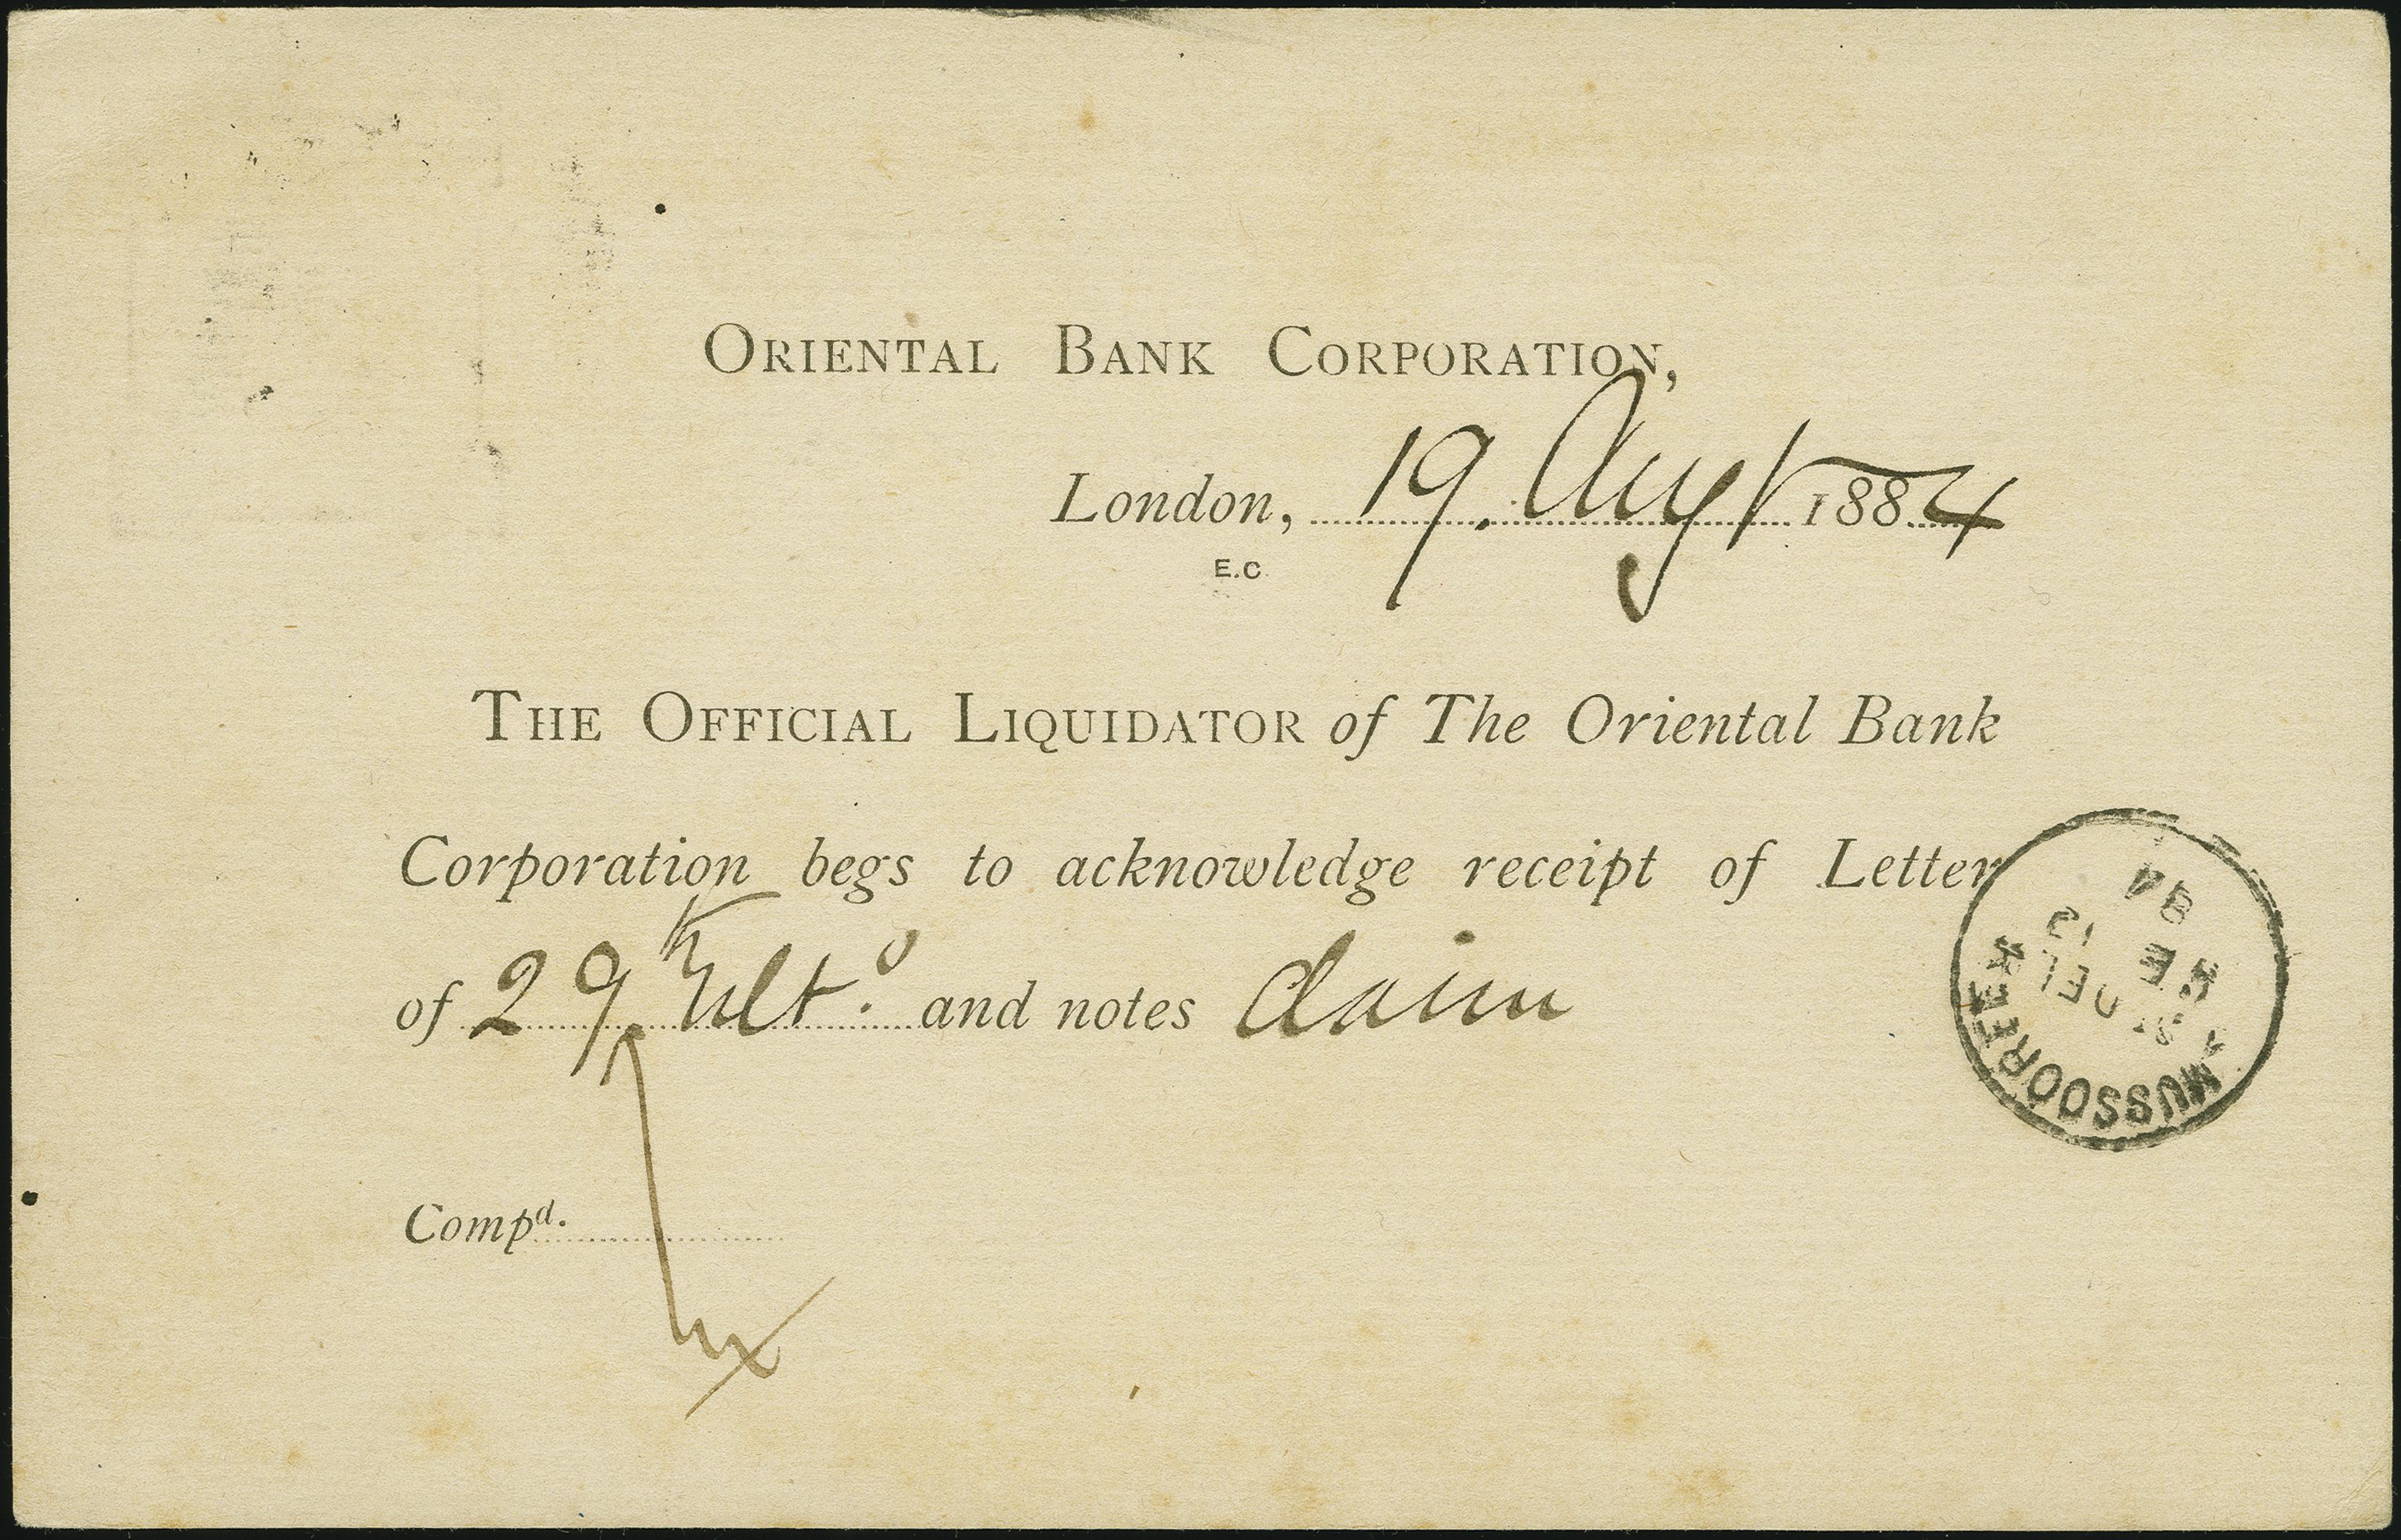 ORIENTAL BANK CORPORATION,
London, 19. Augt 1884
E.C
THE OFFICIAL LIQUIDATOR of The Oriental Bank
Corporation begs to acknowledge receipt of Letter
of 29th ulto. and notes claim
Compd.
MUSSOOREE
SE 12
84